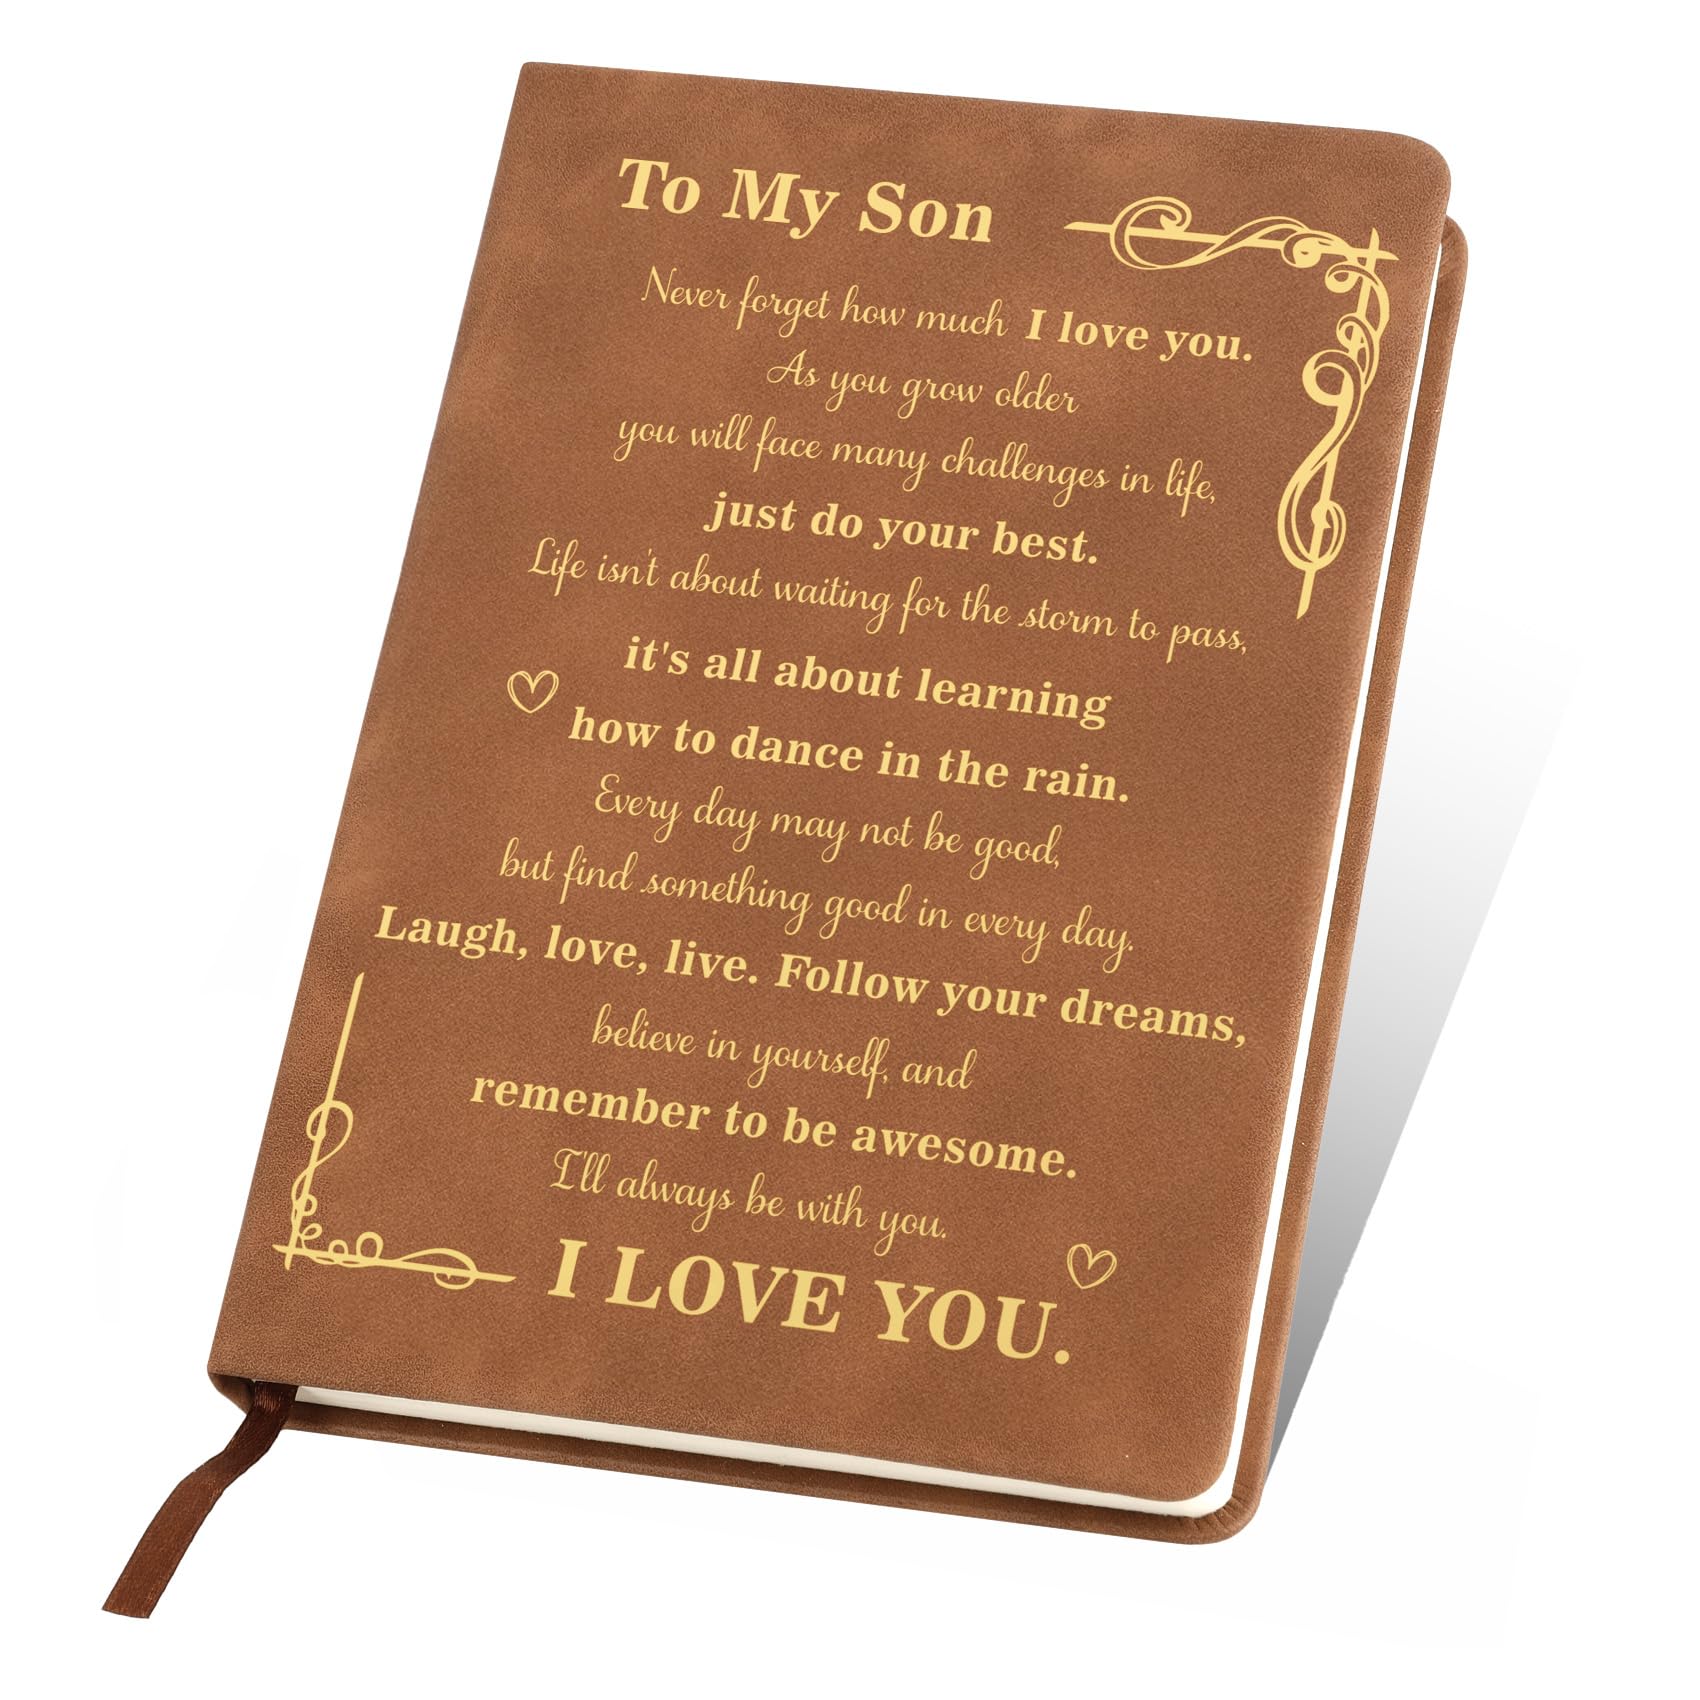 To My Son
Never forget how much I love you.
As you grow older
you will face many challenges in life,
just do your best.
Life isn't about waiting for the storm to pass,
it's all about learning
how to dance in the rain.
Every day may not be good,
but find something good in every day.
Laugh, love, live. Follow your dreams,
believe in yourself, and
remember to be awesome.
I'll always be with you.
I LOVE YOU.